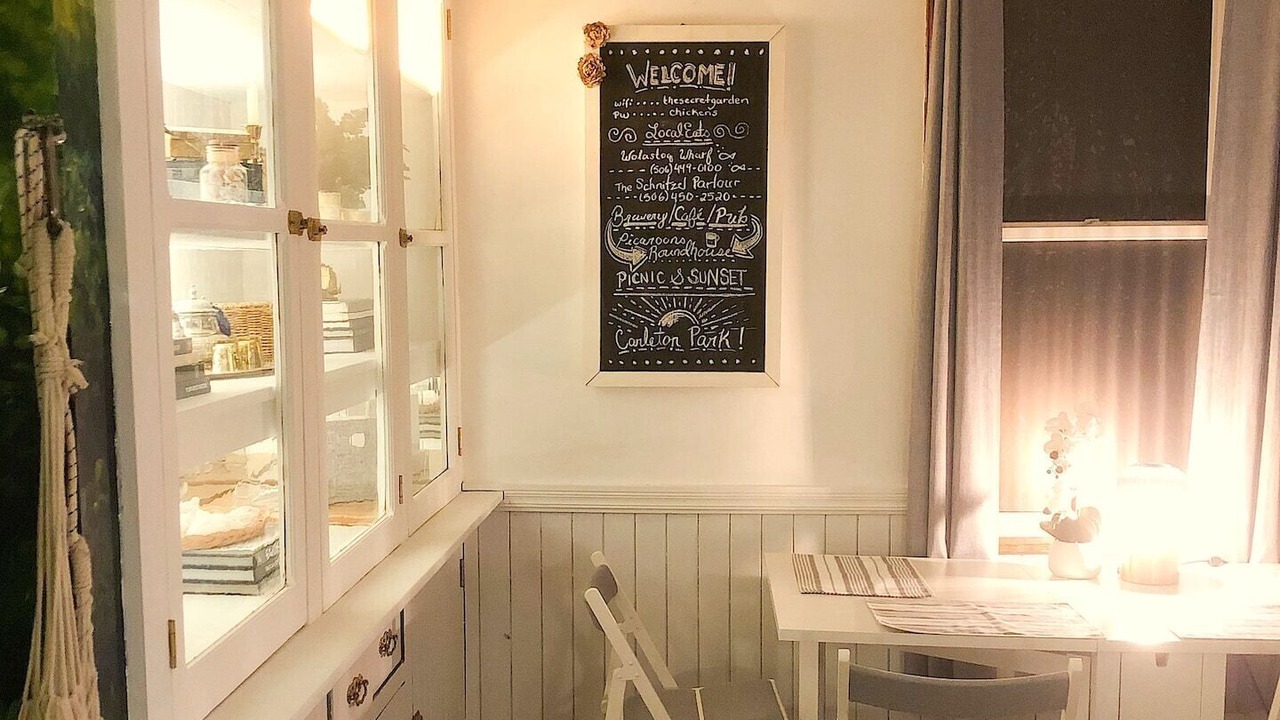 WELCOME!
wifi .... thesecretgarden
PW ..... chickens
Local Eats
Wolastoq Wharf
(506) 449-0100
The Schnitzel Parlour
(506) 450-2520
Brewery/Café/Pub
Picaroons
Roundhouse
PICNIC & SUNSET
Carleton Park!